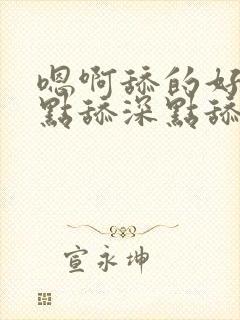 嗯啊舔的好
點舔深點舔
宣永坤